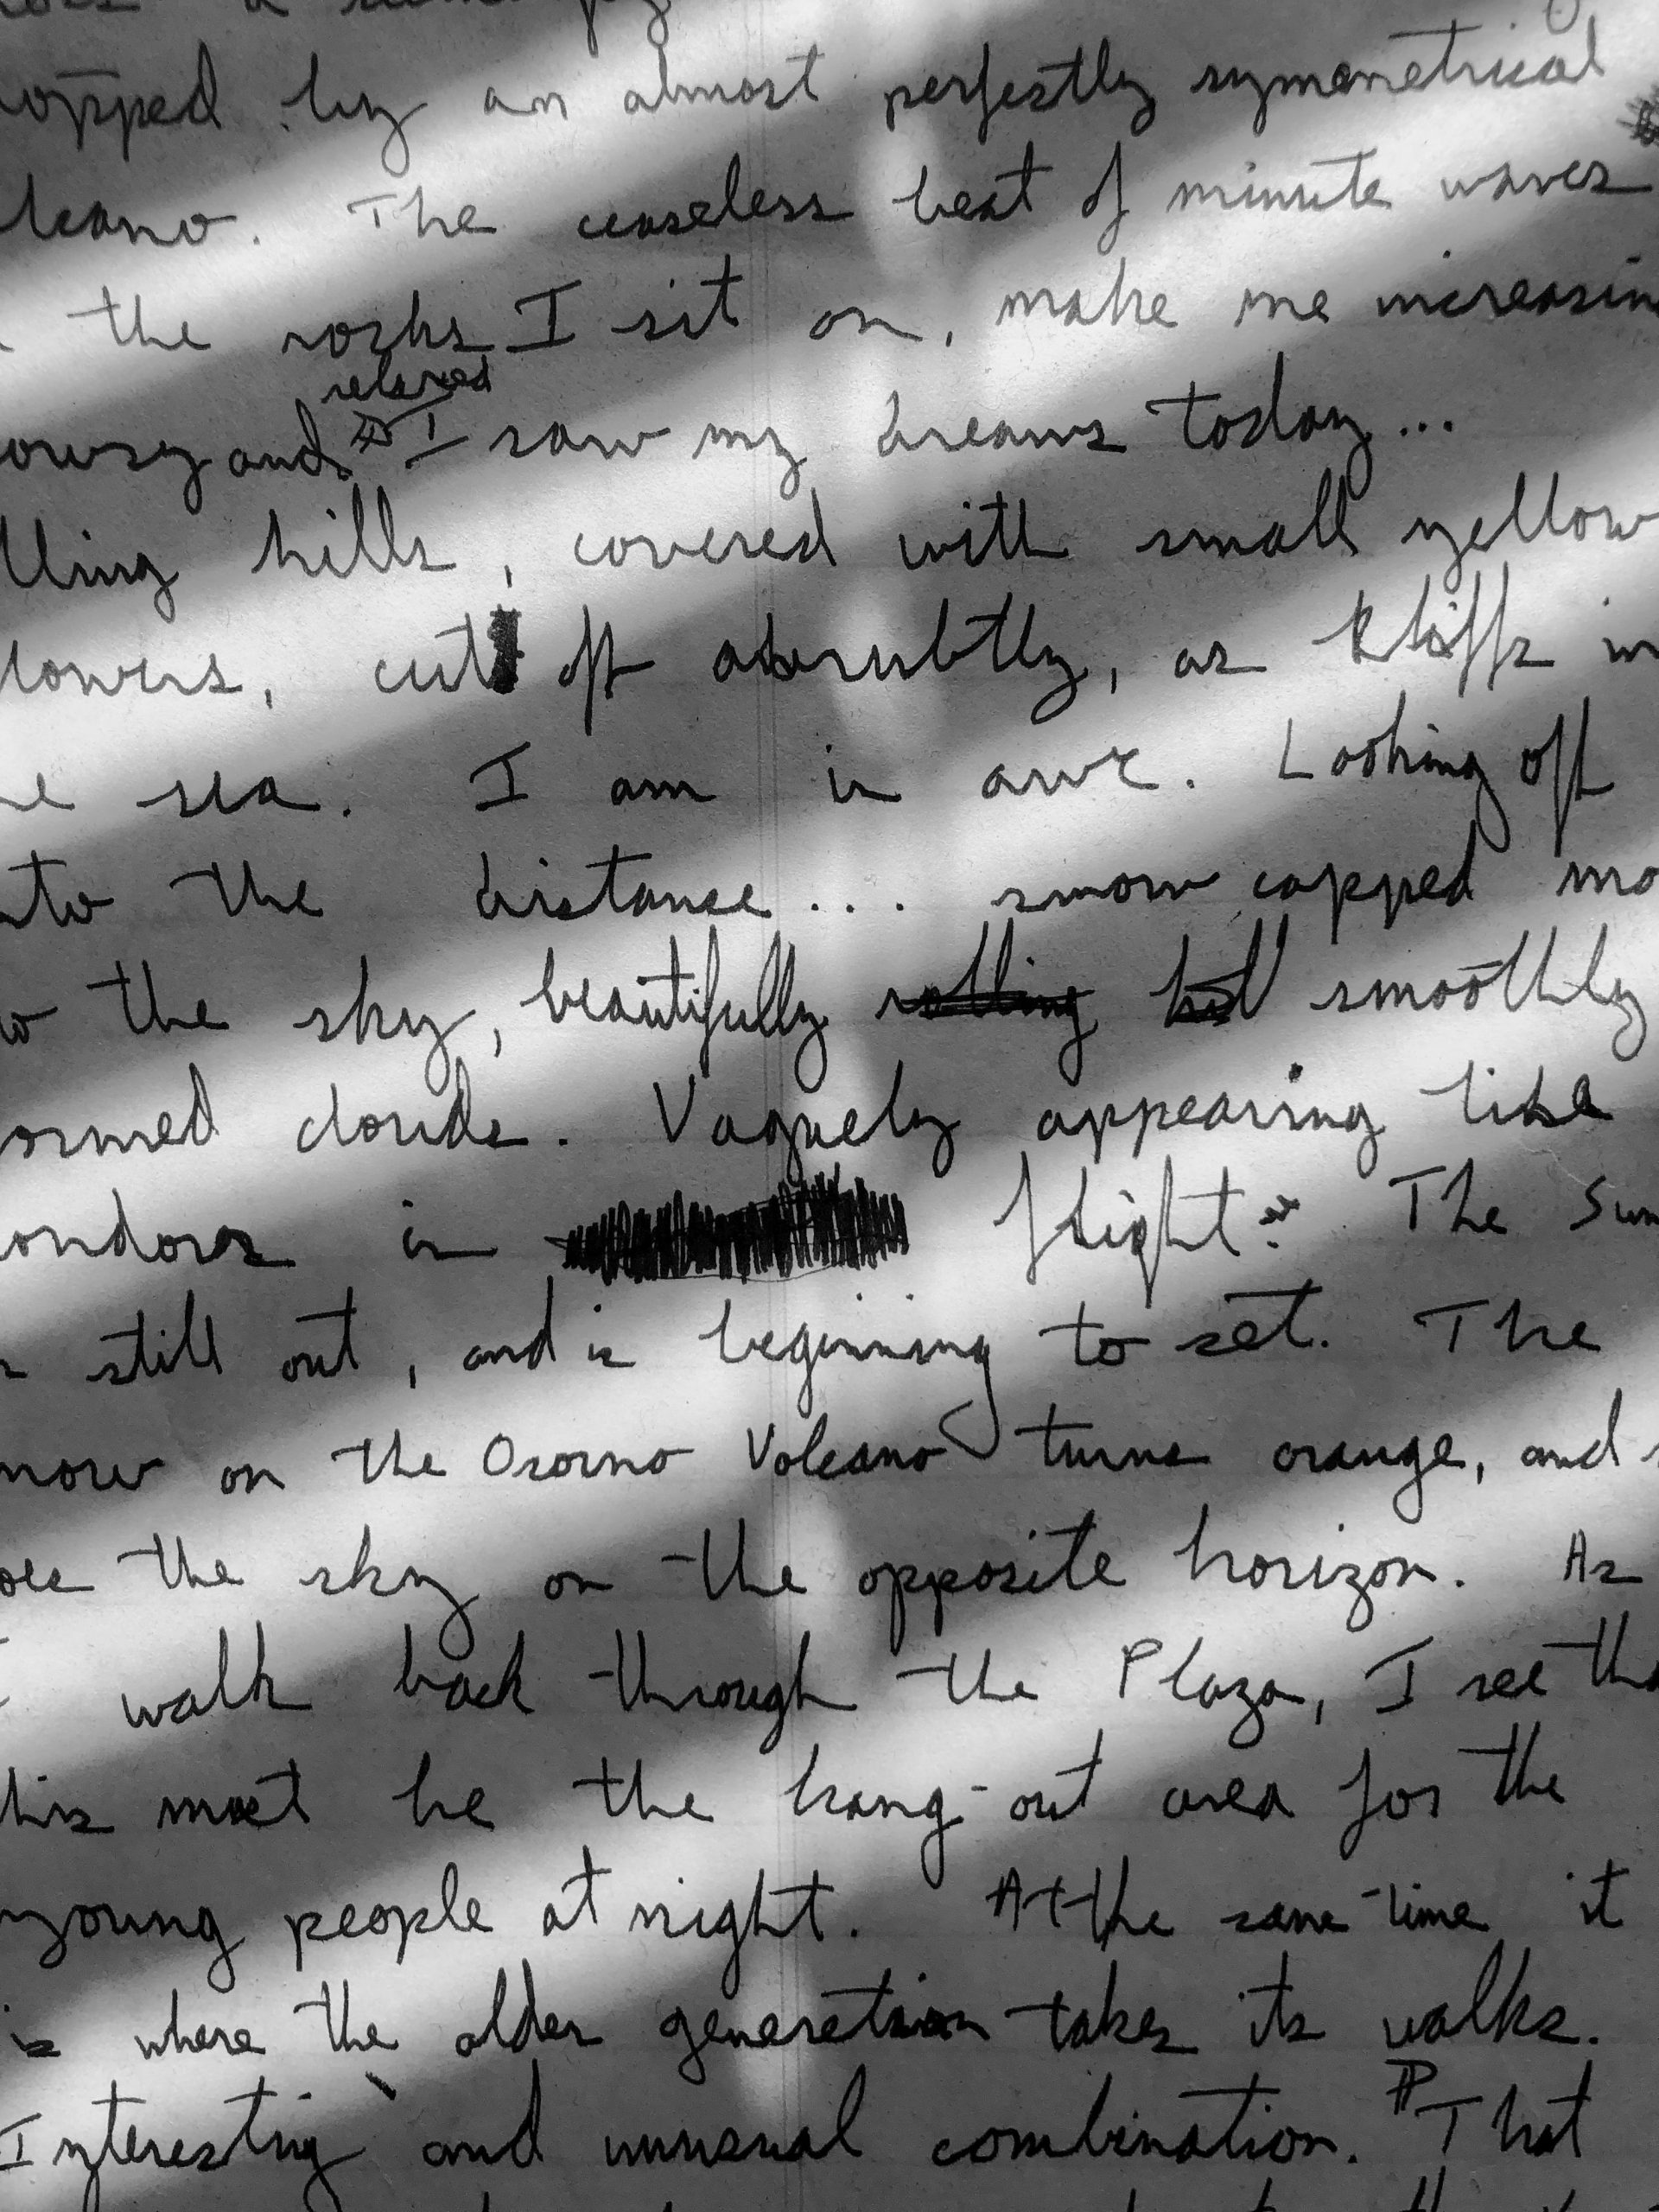 opped by an almost perfectly symmetrical
lcano. The ceaseless beat of minute waves
the rocks I sit on, make me increasin
relaxed
owsy and I saw my dreams today...
lling hills, covered with small yellow
lowers, cut off abrubtly, as kliffs in
he sea. I am in awe. Looking off
nto the distance... snow capped mo
o the sky, beautifully rolling hil smoothly
ormed clouds. Vaguely appearing like
ondors in flight. The Sun
s still out, and is beginning to set. The
now on the Osorno Volcano turns orange, and s
oes the sky on the opposite horizon. As
I walk back through the Plaza, I see tha
his must be the hang-out area for the
young people at night. At the same time it
is where the older generation takes its walks.
Interestig and unusual combination. That